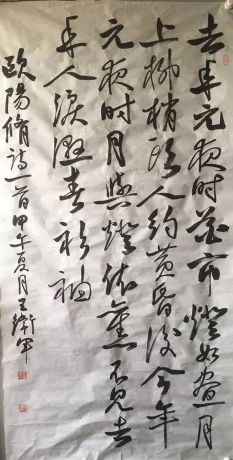 去年元夜时花市燈如晝月
上柳梢头人约黄昏後今年
元夜时月與燈依舊不見去
年人淚濕春衫袖
歐陽脩詩一首甲午夏月王衛軍